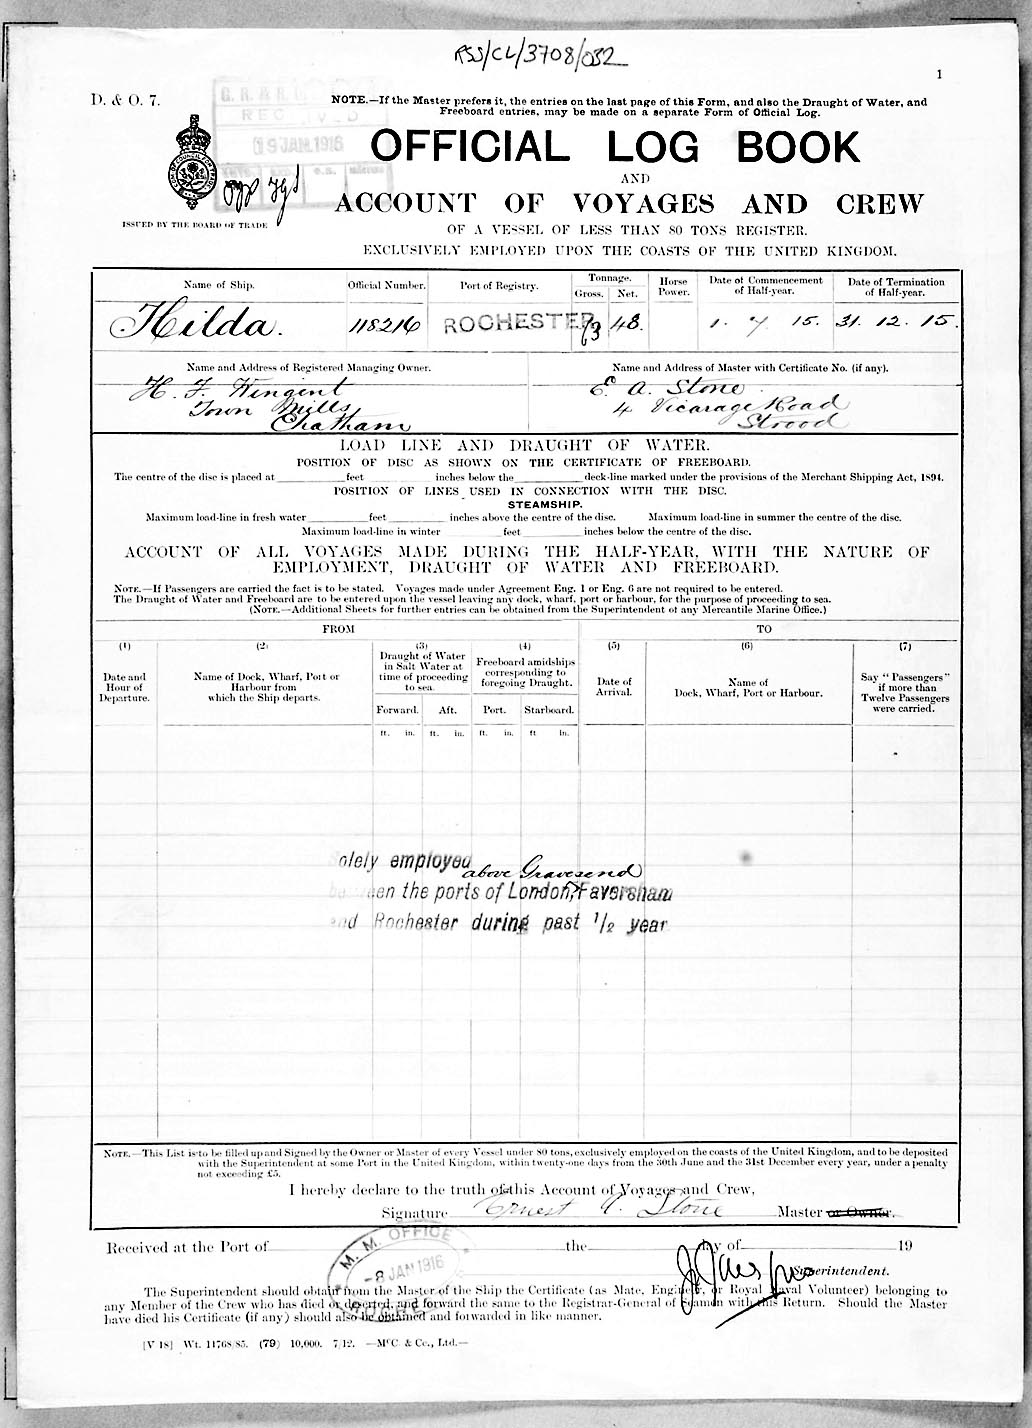 RSS/CL/3708/032
1
D. & O. 7.
NOTE.—If the Master prefers it, the entries on the last page of this Form, and also the Draught of Water, and
Freeboard entries, may be made on a separate Form of Official Log.
RECEIVED
19 JAN. 1916
OFFICIAL LOG BOOK
AND
ACCOUNT OF VOYAGES AND CREW
ISSUED BY THE BOARD OF TRADE
OF A VESSEL OF LESS THAN 80 TONS REGISTER.
EXCLUSIVELY EMPLOYED UPON THE COASTS OF THE UNITED KINGDOM.
Name of Ship. Official Number. Port of Registry. Tonnage. Gross. Net. Horse Power. Date of Commencement of Half-year. Date of Termination of Half-year.
Hilda. 118216 ROCHESTER 63 48. 1. 7 15. 31. 12. 15.
Name and Address of Registered Managing Owner. Name and Address of Master with Certificate No. (if any).
H. F. Wingent E. A. Stone
Town Mills 4 Vicarage Road
Chatham Strood
LOAD LINE AND DRAUGHT OF WATER.
POSITION OF DISC AS SHOWN ON THE CERTIFICATE OF FREEBOARD.
The centre of the disc is placed at feet inches below the deck-line marked under the provisions of the Merchant Shipping Act, 1894.
POSITION OF LINES USED IN CONNECTION WITH THE DISC.
STEAMSHIP.
Maximum load-line in fresh water feet inches above the centre of the disc. Maximum load-line in summer the centre of the disc.
Maximum load-line in winter feet inches below the centre of the disc.
ACCOUNT OF ALL VOYAGES MADE DURING THE HALF-YEAR, WITH THE NATURE OF
EMPLOYMENT, DRAUGHT OF WATER AND FREEBOARD.
NOTE.—If Passengers are carried the fact is to be stated. Voyages made under Agreement Eng. 1 or Eng. 6 are not required to be entered.
The Draught of Water and Freeboard are to be entered upon the vessel leaving any dock, wharf, port or harbour, for the purpose of proceeding to sea.
(NOTE.—Additional Sheets for further entries can be obtained from the Superintendent of any Mercantile Marine Office.)
FROM TO
(1) (2) (3) (4) (5) (6) (7)
Date and Hour of Departure.
Name of Dock, Wharf, Port or Harbour from which the Ship departs.
Draught of Water in Salt Water at time of proceeding to sea.
Freeboard amidships corresponding to foregoing Draught.
Date of Arrival.
Name of Dock, Wharf, Port or Harbour.
Say "Passengers" if more than Twelve Passengers were carried.
Forward. Aft. Port. Starboard.
ft. in. ft. in. ft. in. ft in.
olely employed
above Gravesend
between the ports of London, Faversham
and Rochester during past 1/2 year
NOTE.—This List is to be filled up and Signed by the Owner or Master of every Vessel under 80 tons, exclusively employed on the coasts of the United Kingdom, and to be deposited
with the Superintendent at some Port in the United Kingdom, within twenty-one days from the 30th June and the 31st December every year, under a penalty
not exceeding £5.
I hereby declare to the truth of this Account of Voyages and Crew,
Signature Ernest A. Stone Master or Owner.
Received at the Port of the day of 19
M. M. OFFICE
-8 JAN 1916
Superintendent.
The Superintendent should obtain from the Master of the Ship the Certificate (as Mate, Engineer, or Royal Naval Volunteer) belonging to
any Member of the Crew who has died or deserted, and forward the same to the Registrar-General of Seamen with this Return. Should the Master
have died his Certificate (if any) should also be obtained and forwarded in like manner.
[V 18] Wt. 11768/85. (79) 10,000. 7/12. —McC. & Co., Ltd.—